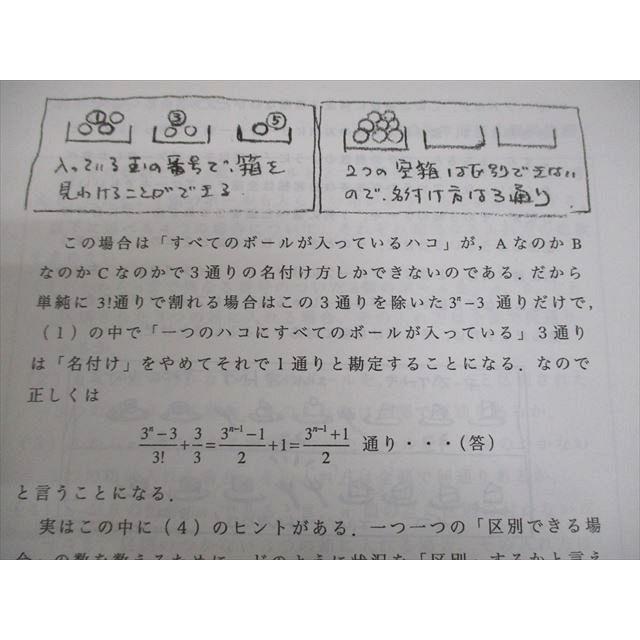 ① ③ ⑤
入っている玉の番号で、箱を
見わけることができる
2つの空箱は区別できない
ので、名付け方は3通り
この場合は「すべてのボールが入っているハコ」が，AなのかB
なのかCなのかで3通りの名付け方しかできないのである．だから
単純に3!通りで割れる場合はこの3通りを除いた3ⁿ−3 通りだけで，
（1）の中で「一つのハコにすべてのボールが入っている」3通り
は「名付け」をやめてそれで1通りと勘定することになる．なので
正しくは
(3ⁿ−3)/3! + 3/3 = (3ⁿ⁻¹−1)/2 + 1 = (3ⁿ⁻¹+1)/2 通り・・・(答)
と言うことになる．
実はこの中に（4）のヒントがある．一つ一つの「区別できる場
合」の数を数えるために，どのように状況を「区別」するかと言え